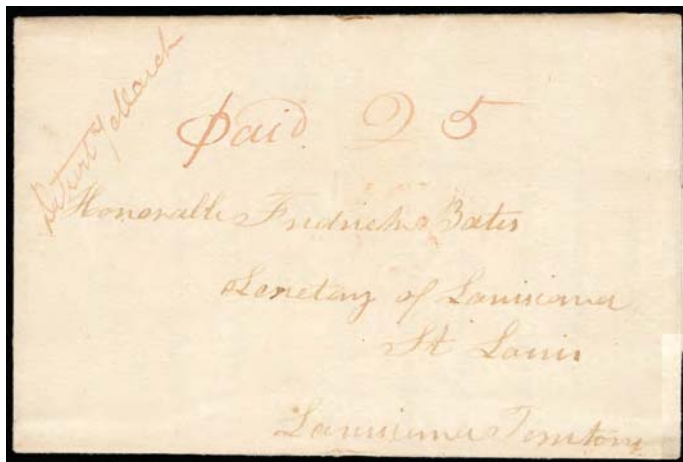 Detroit 7 March
Paid 25
Honorable Fredrick Bates
Secretary of Louisiana
St Louis
Louisiana Territory